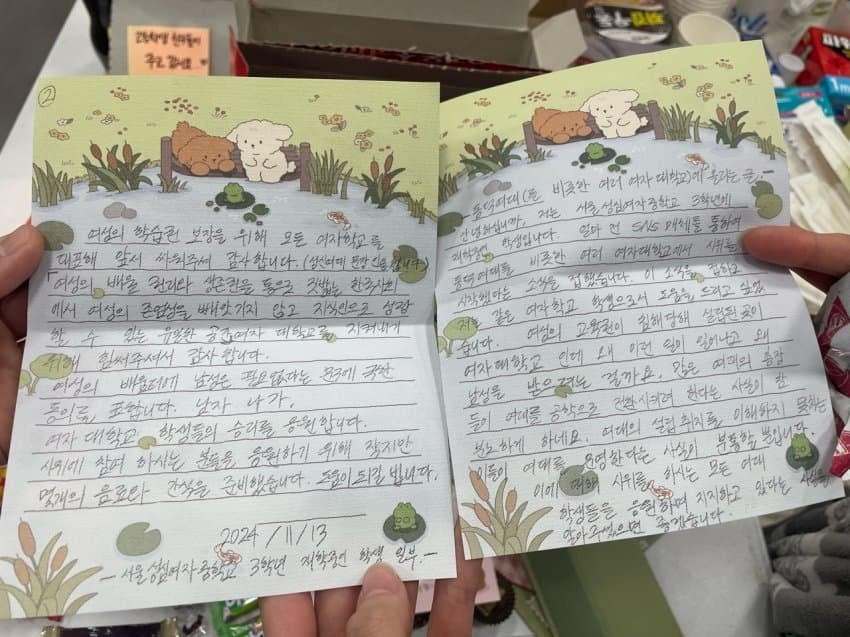 고등학생 친구들이
주고 갔어요
②
여성의 학습권 보장을 위해 모든 여자학교를
대표해 앞서 싸워주셔 감사합니다. (성신여대 문장 인용합니다)
「여성의 배울 권리와 생존권을 등으로 위협받는 한국사회
에서 여성의 존엄성을 빼앗기지 않고 지식인으로 성장
할 수 있는 유일한 공간」여자 대학교를 지켜내기
위해 힘써주셔서 감사합니다.
여성의 배움터에 남성은 필요없다는 문구에 극한
동의를 표합니다. 남자 나가.
여자 대학교 학생들의 승리를 응원합니다.
시위에 참여 하시는 분들을 응원하기 위해 작지만
몇개의 음료와 간식을 준비했습니다. 도움이 되길 빕니다.
2024/11/13
- 서울성심여자중학교 3학년 재학중인 학생 일부. -
- 동덕여대 (를 비롯한 여러 여자 대학교)에 올리는 글. -
안녕하십니까. 저는 서울성심여자중학교 3학년에
재학중인 학생입니다. 얼마 전 SNS 매체를 통하여
동덕여대를 비롯한 여러 여자대학교에서 시위를
시작했다는 소식을 접했습니다. 이 소식을 접하고
저는 같은 여자학교 학생으로서 도움을 드리고 싶었
습니다. 여성의 교육권이 위해당해 설립된 곳이
여자대학교 인데 왜 이런 일이 일어나고 왜
남성을 받으려는 걸까요. 많은 여대의 총장
들이 여대를 공학으로 전환시키려 한다는 사실이 참
분노하게 하네요. 여대의 설립 취지를 이해하지 못하는
이들이 여대를 운영한다는 사실이 분통할 뿐입니다.
이에 대해 시위를 하시는 모든 여대
학생들을 응원하며 지지하고 있다는 사실을
알아주셨으면 좋겠습니다.